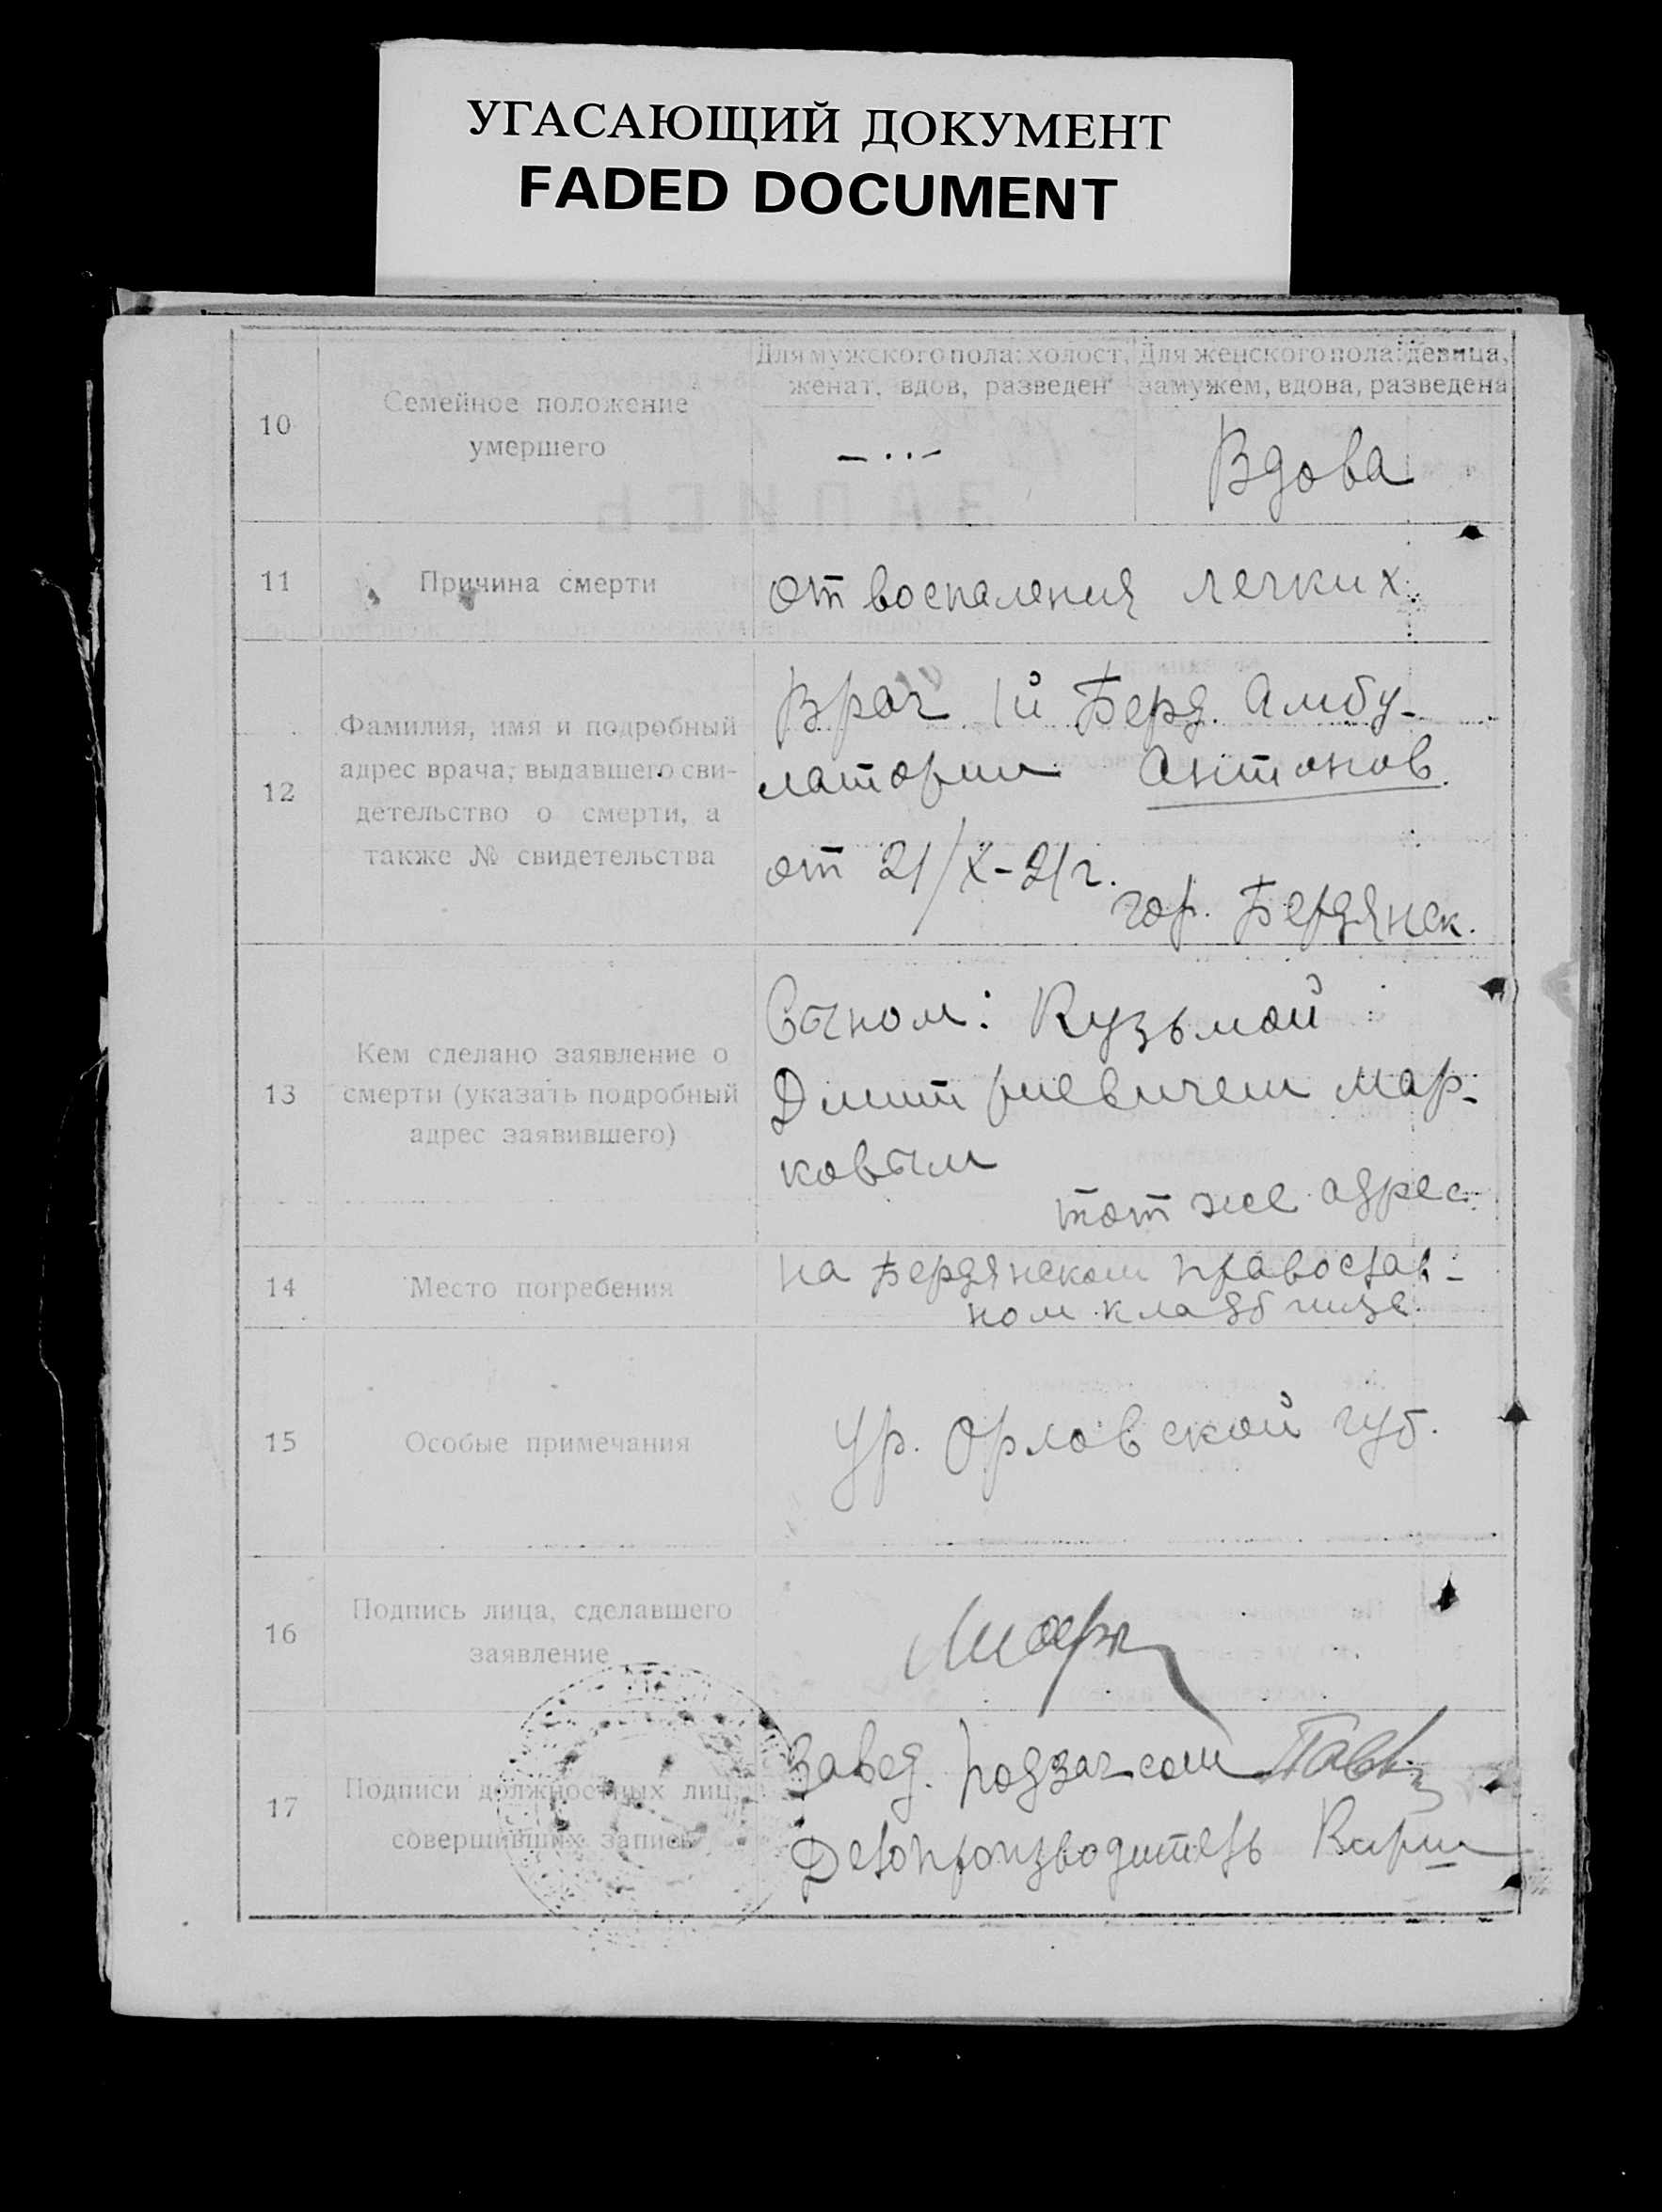 УГАСАЮЩИЙ ДОКУМЕНТ
FADED DOCUMENT
10
Семейное положение
умершего
Для мужского пола: холост,
женат, вдов, разведен
Для женского пола: девица,
замужем, вдова, разведена
Вдова
ЗАПИСЬ
11
Причина смерти
от воспаления легких
12
Фамилия, имя и подробный
адрес врача, выдавшего сви-
детельство о смерти, а
также № свидетельства
Врач 1й Берд. Амбу-
латории Антонов
от 21/X-21г.
гор. Бердянск.
13
Кем сделано заявление о
смерти (указать подробный
адрес заявившего)
Сыном: Кузьмой
Дмитриевичем Мар-
ковым
тот же адрес
14
Место погребения
на Бердянском православ-
ном кладбище
15
Особые примечания
Ур. Орловской губ.
16
Подпись лица, сделавшего
заявление
17
Подписи должностных лиц,
совершивших запись
Завед. подзагсом
Делопроизводитель